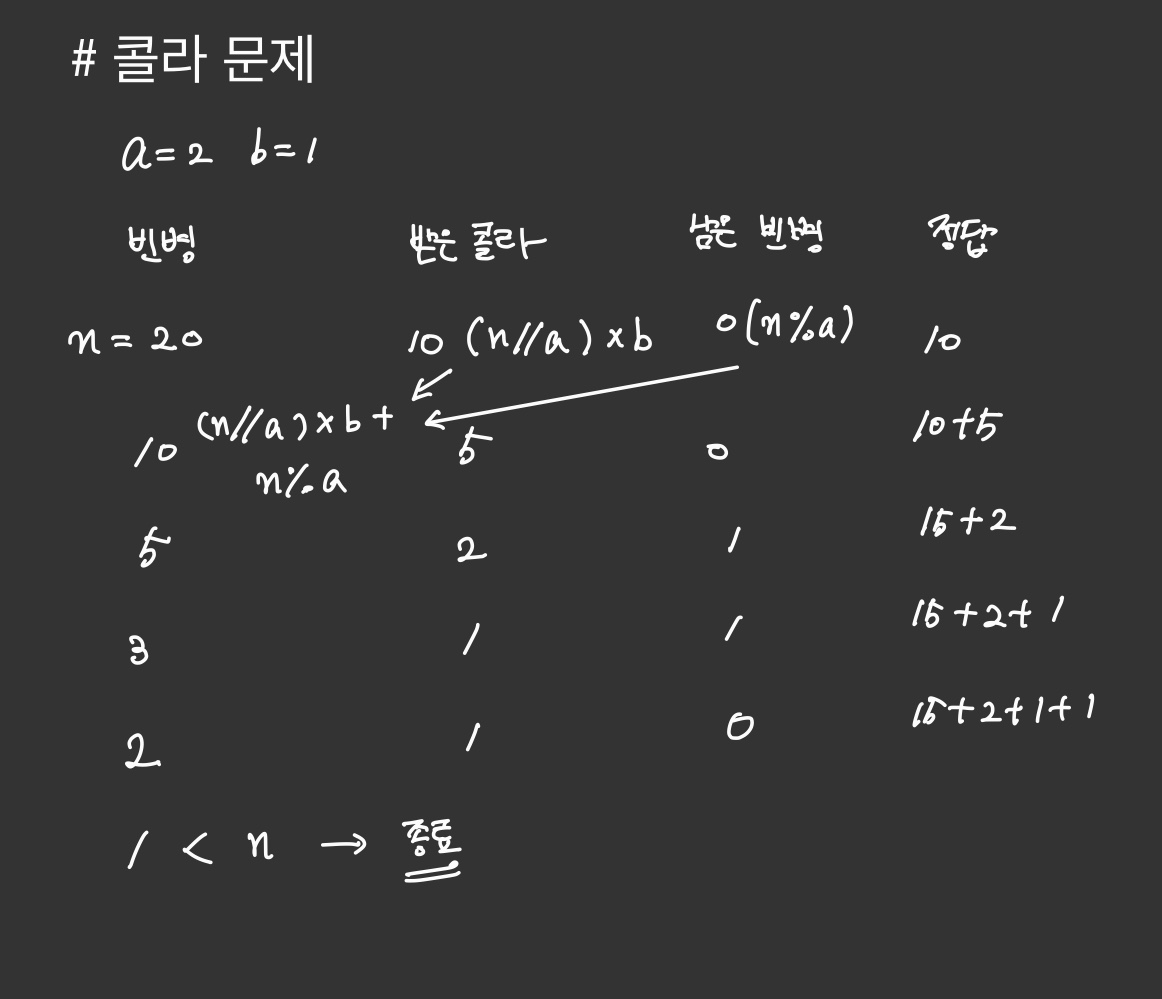 # 콜라 문제
a = 2 b = 1
빈병 받은 콜라 남은 빈병 정답
n = 20 10 (n//a) × b 0 (n%a) 10
10 (n//a) × b + 5 0 10+5
n%a
5 2 1 15+2
3 1 1 15+2+1
2 1 0 15+2+1+1
1 < n → 종료